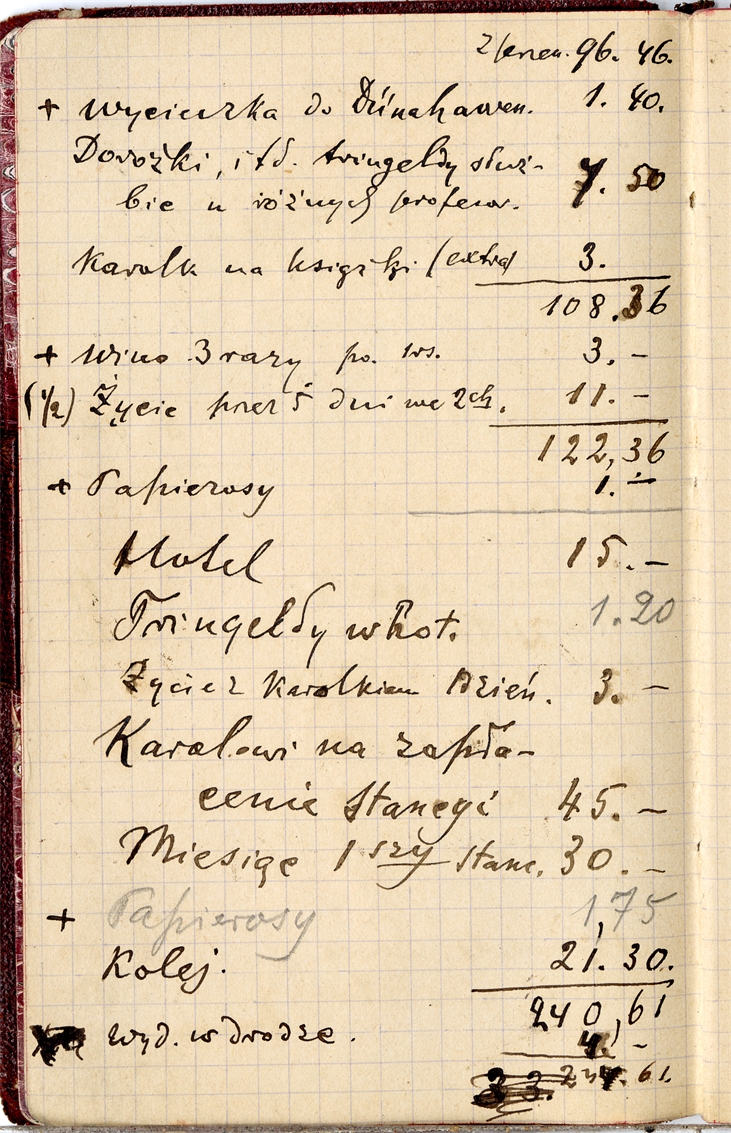 z przen. 96. 46.
+ Wycieczka do Dünahawen. 1. 40.
Dorożki, itd. tringeldy służ-
bie u różnych profesor. 7. 50
Karolk na książki (extra) 3.
108.36
+ Wino 3 razy po. ws. 3. –
(1/2) Życie przez 5 dni we 2ch. 11. –
122,36
+ Papierosy 1. –
Hotel 15. –
Tringeldy w hot. 1.20
Życie z Karolkiem 1 dzień. 3. –
Karolowi na zapła-
cenie stancyi 45. –
Miesiąc 1szy stanc. 30. –
+ Papierosy 1,75
Kolej. 21. 30.
240,61
wyd. w drodze. 4. –
244. 61.